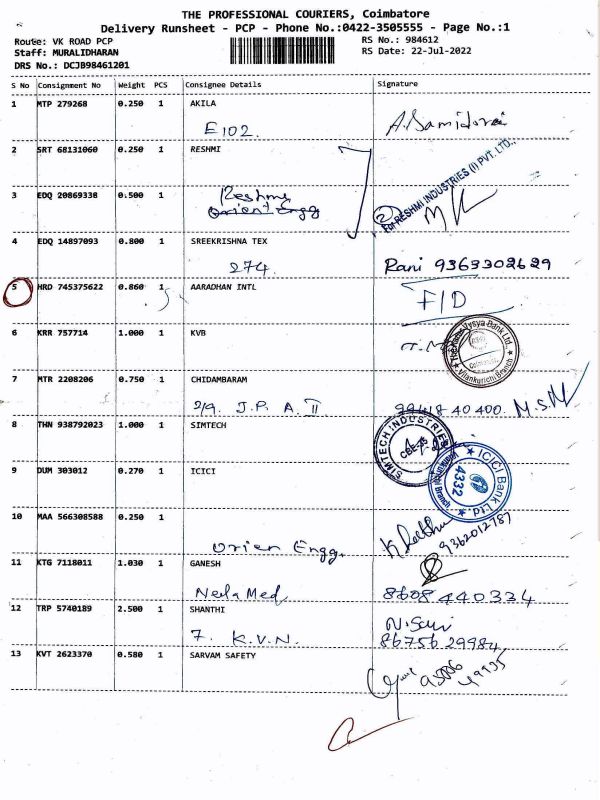 THE PROFESSIONAL COURIERS, Coimbatore
Delivery Runsheet - PCP - Phone No.:0422-3505555 - Page No.:1
Route: VK ROAD PCP
RS No.: 984612
Staff: MURALIDHARAN
RS Date: 22-Jul-2022
DRS No.: DCJB98461201
S No Consignment No Weight PCS Consignee Details Signature
1 MTP 279268 0.250 1 AKILA
E102. A. Samidorai
2 SRT 68131060 0.250 1 RESHMI
For RESHMI INDUSTRIES (I) PVT. LTD.,
3 EDQ 20869338 0.500 1 Reshmi
Orient Engg
2
4 EDQ 14897093 0.800 1 SREEKRISHNA TEX
274. Rani 9363302629
5 HRD 745375622 0.860 1 AARADHAN INTL
F/D
6 KRR 757714 1.000 1 KVB
The Karur Vysya Bank Ltd., Vilankurichi Branch
7 MTR 2208206 0.750 1 CHIDAMBARAM
2/9. J.P. A. II 99418 40 400. M.S.M
8 THN 938792023 1.000 1 SIMTECH
SIMTECH INDUSTRIES
CBE-35
9 DUM 303012 0.270 1 ICICI
ICICI Bank Ltd
4332
10 MAA 566308588 0.250 1
Orien Engg. 9362012787
11 KTG 7118011 1.030 1 GANESH
Neela Med 8608 440334
12 TRP 5740189 2.500 1 SHANTHI
7. K.V.N. 86756 29984
13 KVT 2623370 0.580 1 SARVAM SAFETY